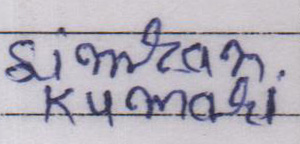 Simran.
Kumari